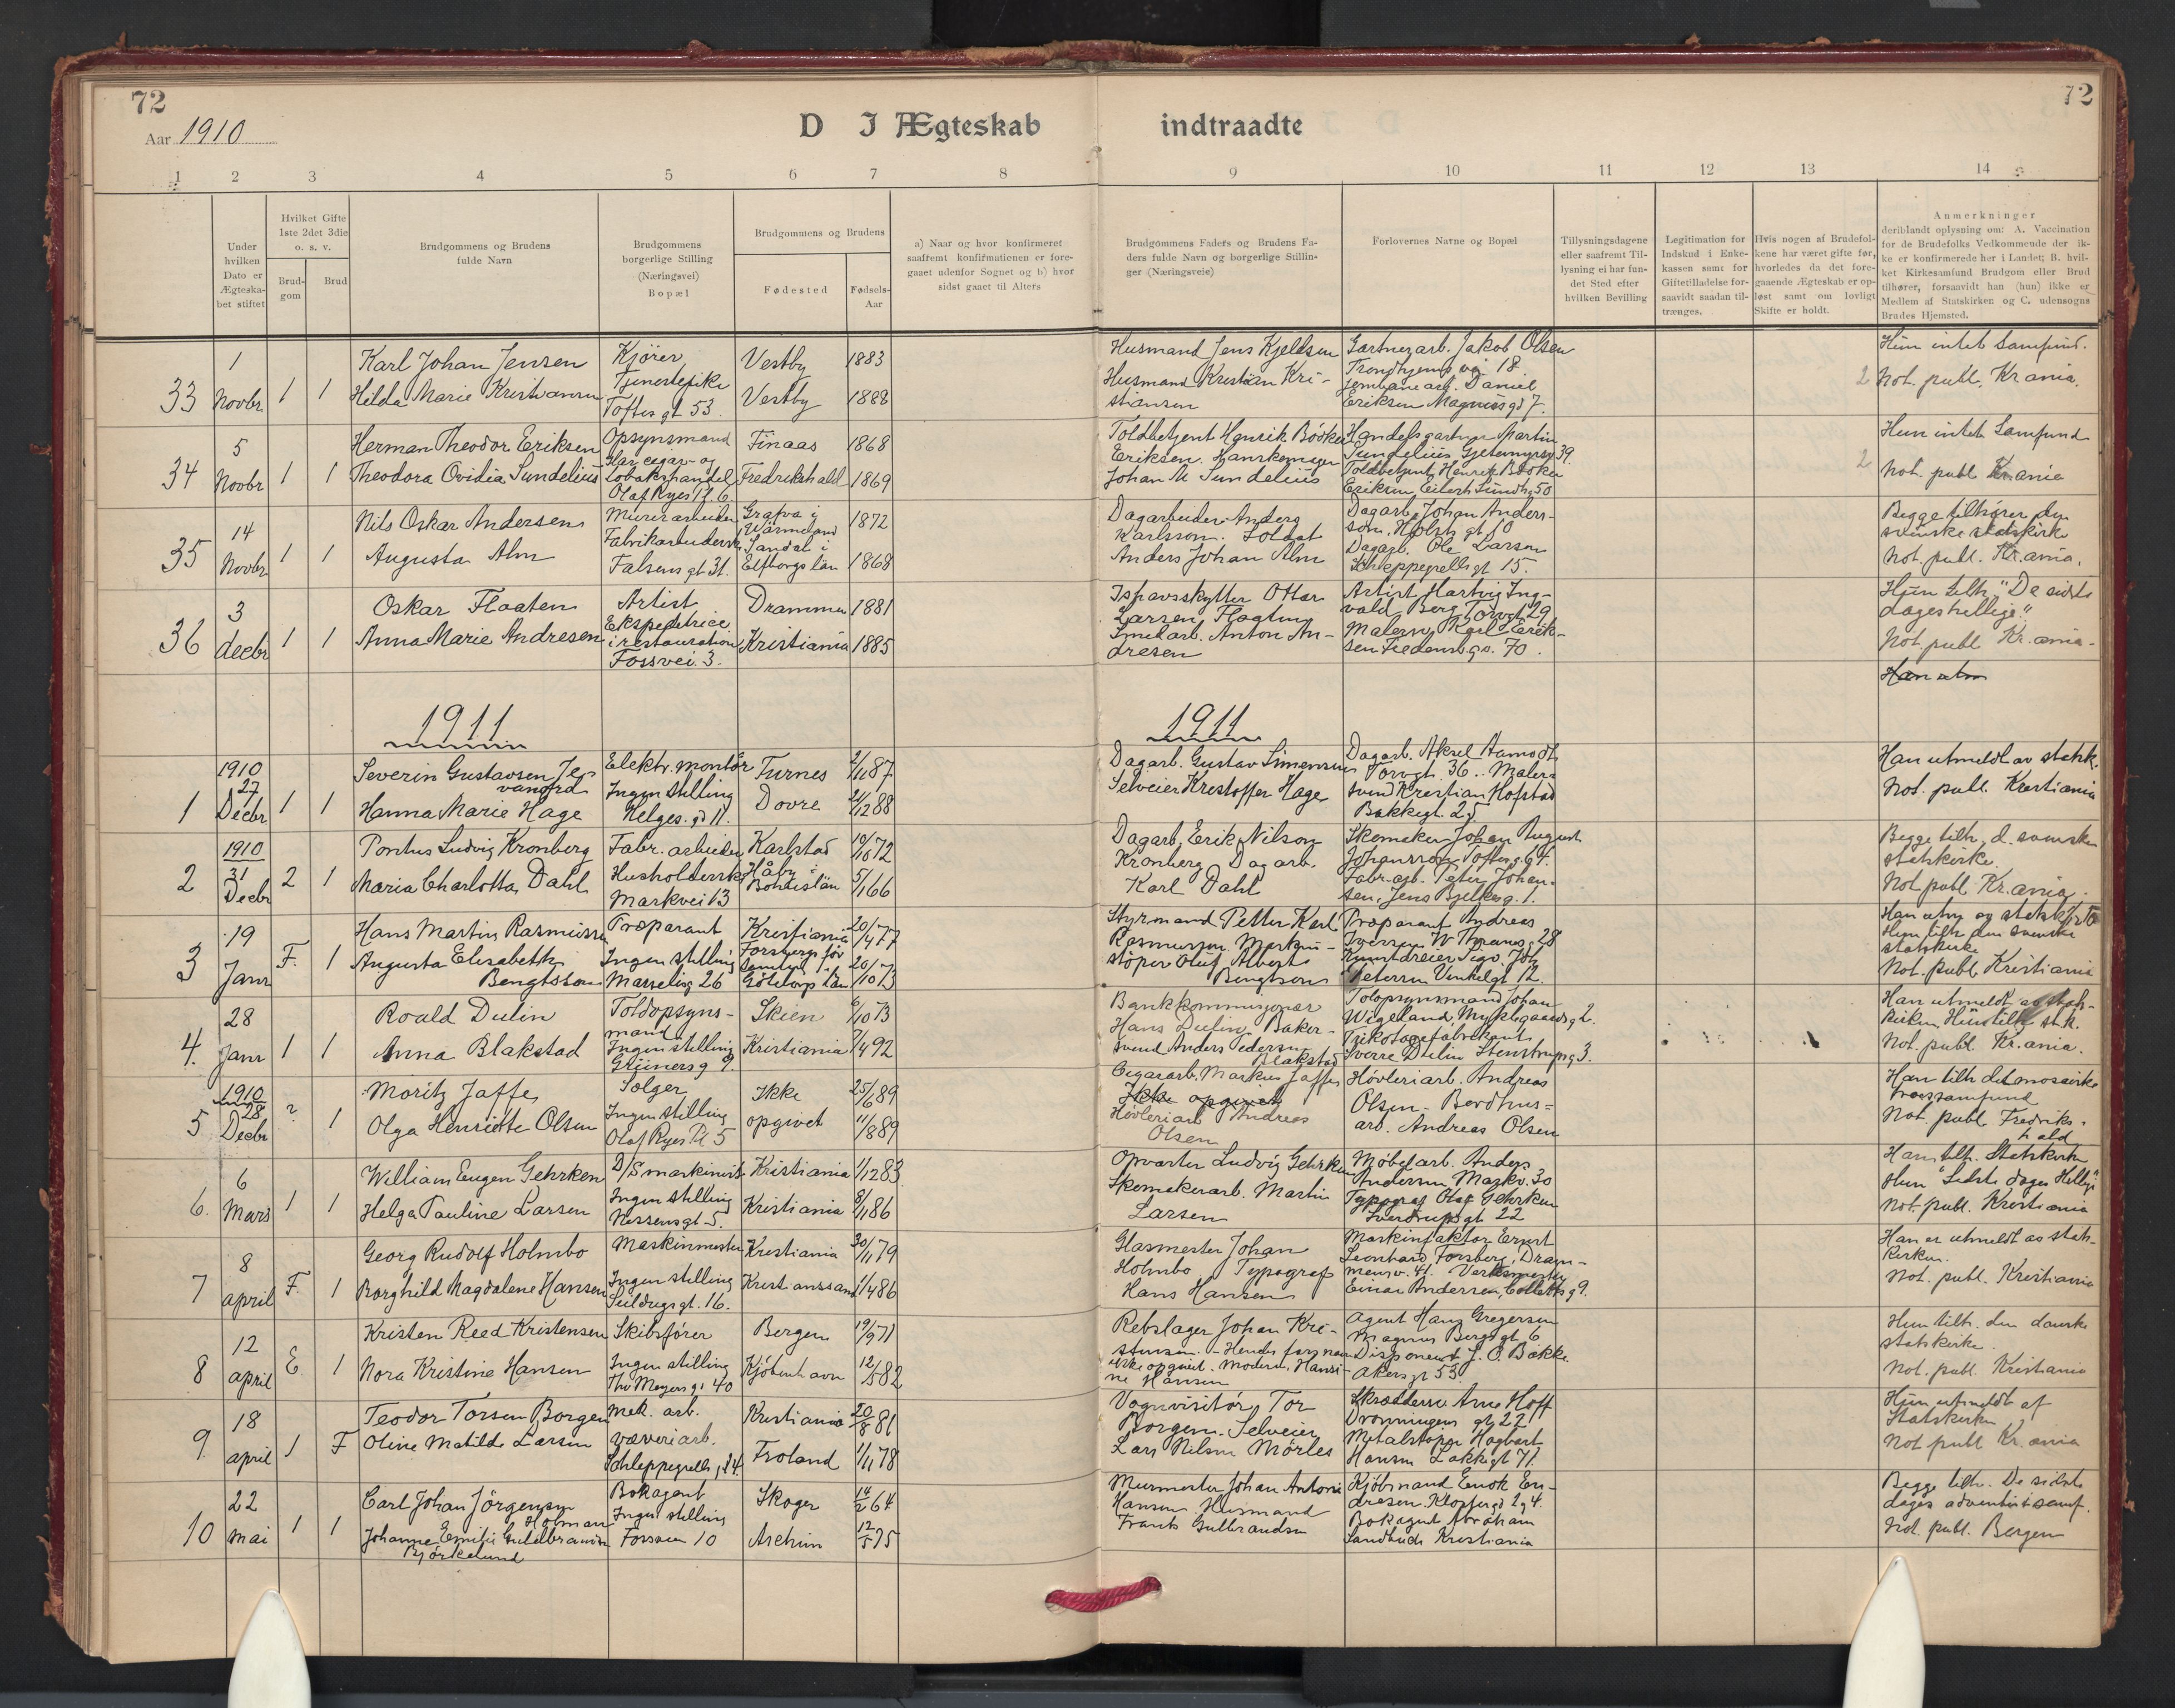 72
72
Aar 1910
D I Ægteskab indtraadte
1 2 3 4 5 6 7 8 9 10 11 12 13 14
Under
hvilken
Dato er
Ægteska-
bet stiftet
Hvilket Gifte
1ste 2det 3die
o. s. v.
Brud-
gom
Brud
Brudgommens og Brudens
fulde Navn
Brudgommens
borgerlige Stilling
(Næringsvei)
Bopæl
Brudgommens og Brudens
Fødested
Fødsels-
Aar
a) Naar og hvor konfirmeret
saafremt konfirmationen er fore-
gaaet udenfor Sognet og b) hvor
sidst gaaet til Alters
Brudgommens Faders og Brudens Fa-
ders fulde Navn og borgerlige Stillin-
ger (Næringsveie)
Forlovernes Navne og Bopæl
Tillysningsdagene
eller saafremt Til-
lysning ei har fun-
det Sted efter
hvilken Bevilling
Legitimation for
Indskud i Enke-
kassen samt for
Giftetilladelse for-
saavidt saadan til-
trænges.
Hvis nogen af Brudefol-
kene har været gifte før,
hvorledes da det fore-
gaaende Ægteskab er op-
løst samt om lovligt
Skifte er holdt.
Anmerkninger
deriblandt oplysning om: A. Vaccination
for de Brudefolks Vedkommende der ik-
ke er konfirmerede her i Landet; B. hvil-
ket Kirkesamfund Brudgom eller Brud
tilhører, forsaavidt han (hun) ikke er
Medlem af Statskirken og C. udensogns
Brudes Hjemsted.
33
1
Novbr
1 1
Karl Johan Jensen
Hilda Marie Kristiansen
Kjører
Tjenestepike
Toftes gt 53.
Vestby 1883
Vestby 1888
Husmand Jens Kjeldsen
Husmand Kristian Kri-
stiansen
Gartnerarb. Jakob Olsen
Trondhjems vei 18
Jernbanearb. Daniel
Eriksen Magnusgd 7.
Hun intet Samfund.
2 Not. publ. Kr.ania.
34
5
Novbr
1 1
Herman Theodor Eriksen
Theodora Ovidia Sundelius
Opsynsmand
Har cigar- og
tobakshandel
Olaf Ryes Pl 6
Finaas 1868
Fredrikshald 1869
Toldbetjent Henrik Böoken
Eriksen. Hanskemager
Johan M Sundelius
Handelsgartner Martin
Sundelius Gjetemyrsv 39.
Toldbetjent Henrik Böoken
Eriksen Eilert Sundtsg 50
Hun intet Samfund
2 Not. publ Kr.ania
35
14
Novbr
1 1
Nils Oskar Andersen
Augusta Alm
Murerarbeider
Fabrikarbeiderske
Falsens gt 31.
Grafva i
Värmeland 1872
Sandal i
Elfborgs län 1868
Dagarbeider Anders
Karlsson. Soldat
Anders Johan Alm
Dagarb. Johan Anders-
son, Holsts gt 10
Dagarb. Ole Larsen
Schleppegrells gt 15.
Begge tilhører den
svenske statskirke
Not. publ. Kr.ania.
36
3
decbr
1 1
Oskar Flaaten
Anna Marie Andresen
Artist
Ekspeditrice
i restauration
Fossvei. 3.
Drammen 1881
Kristiania 1885
Ottar
Larsen Flaaten
Smedarb. Anton An-
dresen
Artist Hartvig Ing-
vald Berg Torvgt 29
Malersv. Karl Erik-
sen Fredensb.gs. 70.
Hun tilh. "De sidste
dages hellige"
Not. publ Kr.ania.
Han utm
1911
1911
1
1910
27
Decbr
1 1
Severin Gustavsen
Hanna Marie Hage
Elektr. montør
Ingen Stilling
Helges. gd 11.
Furnes 2/11 87
Dovre 21/12 88
Dagarb. Gustav Simensen
Selveier Kristoffer Hage
Dagarb. Aksel Aamodt
Torvgt. 36.. Maler-
svend Kristian Hofstad
Bakkegt. 25.
Han utmeldt av statsk.
Not. publ. Kristiania
2
1910
31
Decbr
2 1
Pontus Ludvig Kronberg
Maria Charlotta Dahl
Fabr. arbeider
Husholderske
Markvei 13
Karlstad 10/10 72
Håby i
Bohuslän 5/1 66
Dagarb. Erik Nilson
Kronberg Dagarb.
Karl Dahl
Skomaker Johan August
Johansson Toftesg. 64.
Fabr-arb. Peter Johan-
sen, Jens Bjelkesg. 1.
Begge tilh. d. svenske
statskirke.
Not. publ. Kr.ania.
3
19
Janr
F. 1
Hans Martin Rasmussen
Augusta Elisabeth
Bengtsson
Præparant
Ingen stilling
Marselisg 26
Kristiania 20/4 77
20/10 73
Styrmand Petter Karl
Rasmussen.
støper Oluf Albert
Bengtson
Præparant Andreas
Iversen W Thranesg 28
Petersen Vinkelgt 12.
Hun tilh den svenske
statskirke
Not. publ Kristiania
4.
28
Janr
1 1
Roald Dulin
Anna Blakstad
Toldopsyns-
mand
Ingen stilling
Grünersg 9.
Skien 6/10 73
Kristiania 7/4 92
Bankkommisjonær
Hans Dulin. Baker-
svend Anders Pedersen
Blakstad
Toldopsynsmand Johan
Wigeland, Myklegaardsg 2.
Trikotagefabrikant
Sverre Dulin Stenstrupsg 3.
Han utmeldt av stats-
kirken. Hun tilh. st.k.
Not. publ. Kr.ania.
5
1910
28
Decbr
? 1
Moritz Jaffe
Olga Henriette Olsen
Sælger
Ingen stilling
Olaf Ryes Pl 5
Ikke
opgivet
25/6 89
11/8 89
Cigararb. Markus Jaffe
Ikke opgivet
Høvleriarb Andreas
Olsen
Høvleriarb. Andreas
Olsen - Bordhus-
arb. Andreas Olsen
Han tilh det mosaiske
trossamfund
Not publ. Fredriks-
hald
6.
6
Mars
1 1
William Eugen Gehrken
Helga Pauline Larsen
D/S maskinist
Ingen stilling
Nissensgt 5.
Kristiania 1/12 83
Kristiania 8/1 86
Opvarter Ludvig Gehrken
Skomakerarb. Martin
Larsen
Møbelarb. Anders
Andersen Markv. 30
Typograf Olaf Gehrken
Sverdrupsgt 22
Han tilh. Statskirken
Hun "Sidste dages Hellige"
Not. publ. Kristiania
7
8
april
F. 1
Georg Rudolf Holmbo
Borghild Magdalene Hansen
Maskinmester
Ingen stilling
Seildugsgt. 16.
Kristiania 30/11 79
Kristianssand 1/4 86
Glasmester Johan
Holmbo Typograf
Hans Hansen
Maskinfaktor Ernst
Leonhard Forsberg, Dram-
mensv. 41. Verksmester
Einar Andersen, Collettsg 9.
Han er utmeldt av stats-
kirken.
Not. publ. Kristiania
8
12
april
E 1
Kristen Reed Kristensen
Nora Kristine Hansen
Skibsfører
Ingen stilling
Thv Meyersgt 40
Bergen 19/9 71
Kjøbenhavn 12/5 82
Rebslager Johan Kri-
stensen. - Hendes fars navn
ikke opgivet. Moderen, Hansi-
ne Hansen
Agent Hans Gregersen
Magnus Bergs gt 6
Disponent J. O. Bakke
Akersgt 55.
Hun tilh. den danske
statskirke.
Not. publ. Kristiania
9.
18
april
1 F
Teodor Torsen Borgen
Oline Matilde Larsen
Mek. arb.
væveriarb.
Schleppegrells gt 4.
Kristiania 20/8 81
Froland 1/11 78
Vognvisitør, Tor
Borgen. Selveier
Lars Nilsen Mørles
Skrædder Arne Hoff
Dronningens gt 22
Metalstøper Hagbart
Hansen Lakkegt 71.
Hun utmeldt af
Statskirken
Not publ Kr.ania
10
22
mai
1 1
Carl Johan Jörgensen
Holman
Johanne Emilie Guldbrandsen
Björkelund
Bokagent
Ingen stilling
Fossveien 10
Skoger 14/2 64
Askim 12/5 75
Murmester Johan Antoni
Hansen Husmand
Frants Gulbrandsen
Kjøbmand Enok En-
dresen.
Bokagent Abraham
Kristiania
Begge tilh. De sidste
dages adventistsamf.
Not. publ. Bergen